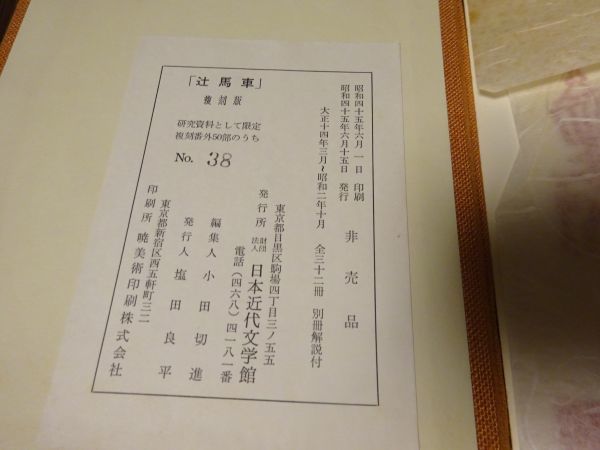 「辻馬車」
復刻版
研究資料として限定
複刻番外50部のうち
No. 38
昭和四十五年六月一日 印刷
昭和四十五年六月十五日 発行
非売品
大正十四年三月〜昭和二年十月 全三十二冊 別冊解説付
東京都目黒区駒場四丁目三ノ五五
発行所 財団法人 日本近代文学館
電話(四六八)四一八一番
編集人 小田切進
発行人 塩田良平
東京都新宿区西五軒町三二
印刷所 暁美術印刷株式会社